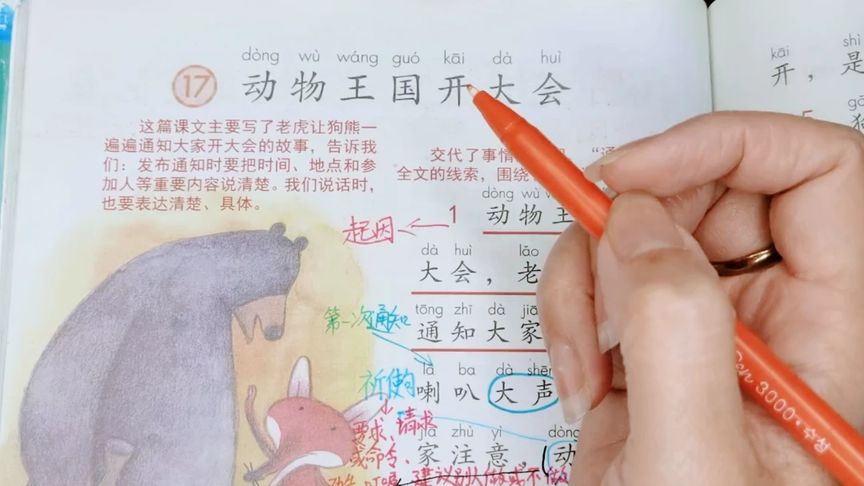 dòng wù wáng guó kāi dà huì
17 动物王国开大会
这篇课文主要写了老虎让狗熊一
遍遍通知大家开大会的故事,告诉我
们:发布通知时要把时间、地点和参
加人等重要内容说清楚。我们说话时,
也要表达清楚、具体。
交代了事情
全文的线索,围绕
起因
dòng wù
1 动物王
dà huì lǎo
大会,老
第一次通知
tōng zhī dà jiā
通知大家
lǎ ba dà shēng
祈使句 喇叭大声
要求、请求
或命令、
jiā zhù yì dòng
家注意,(动
建议别人做或不做
kāi shì
开,是
Pen 3000